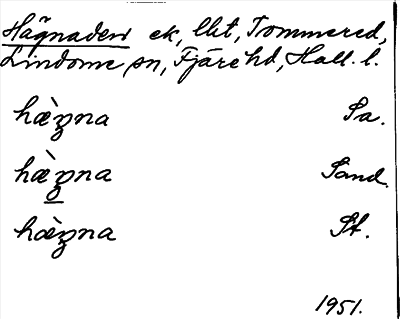 Hägnaden ek, lht, Tommered,
Lindome sn, Fjäre hd, Hall. l.
hæ̀gna Sa.
hæ̀gna Sand.
hæ̀gna St.
1951.